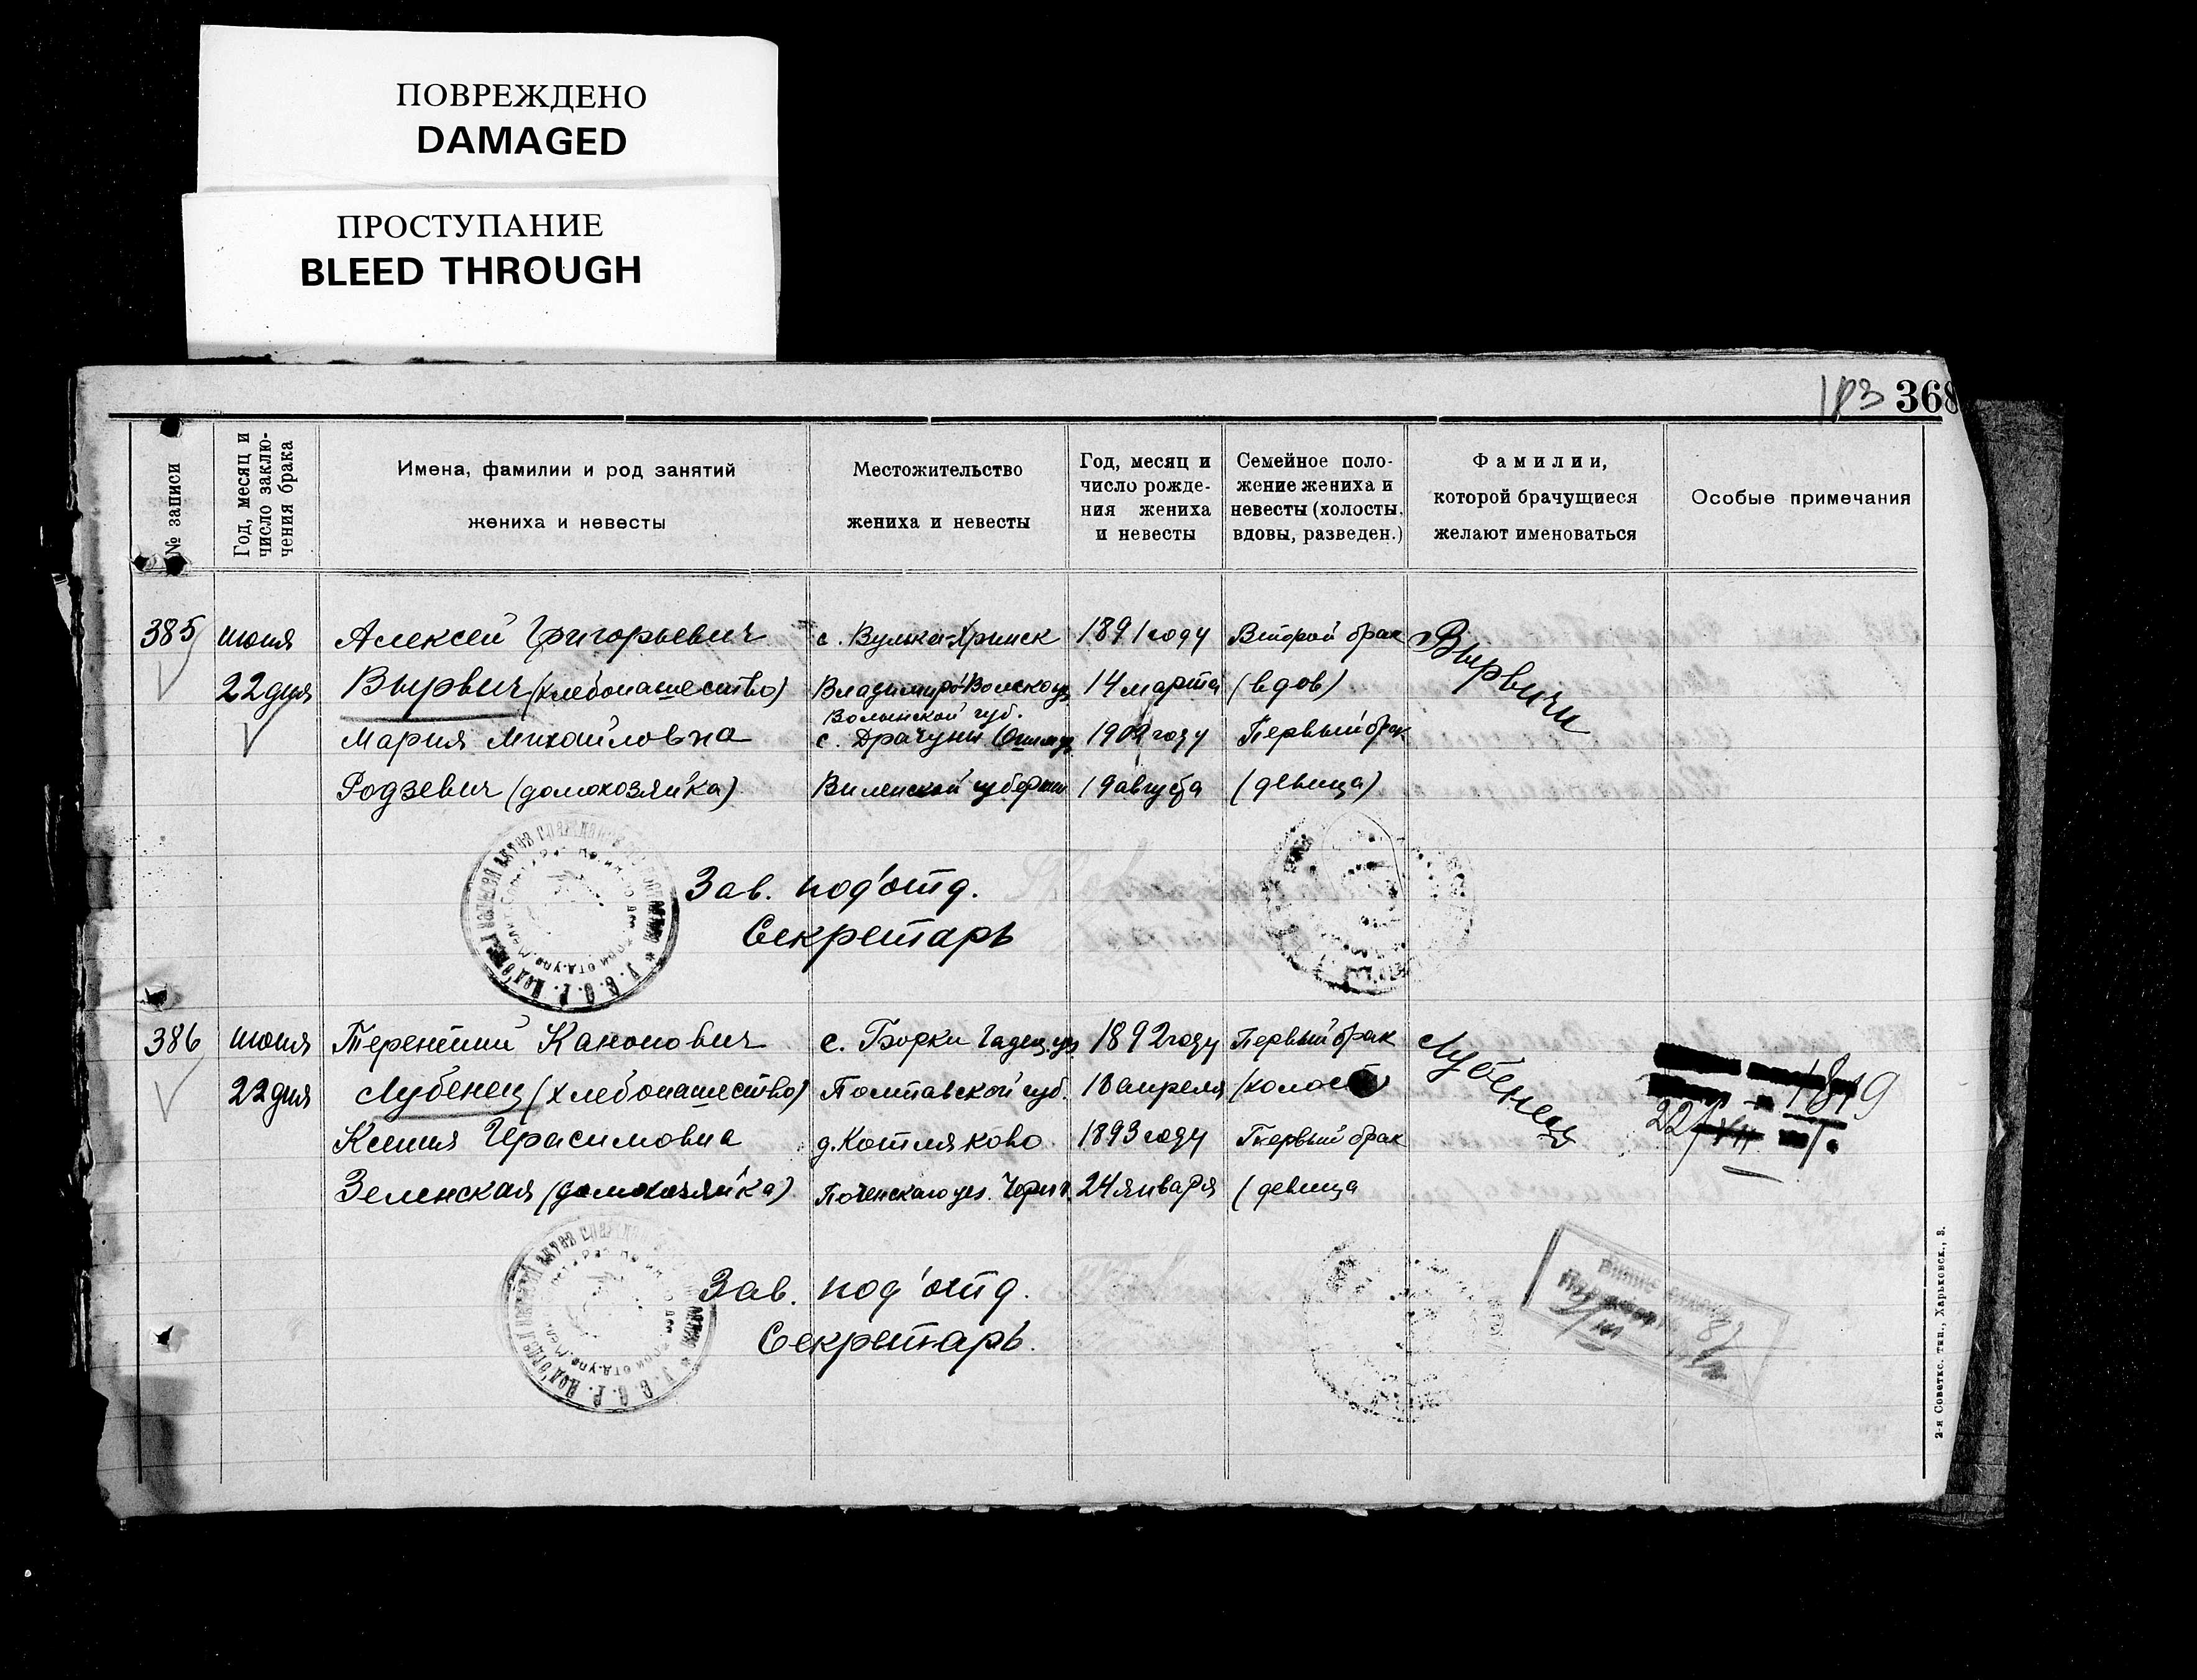 ПОВРЕЖДЕНО
DAMAGED
ПРОСТУПАНИЕ
BLEED THROUGH
183 368
№ записи
Год, месяц и
число заклю-
чения брака
Имена, фамилии и род занятий
жениха и невесты
Местожительство
жениха и невесты
Год, месяц и
число рожде-
ния жениха
и невесты
Семейное поло-
жение жениха и
невесты (холосты,
вдовы, разведен.)
Фамилии,
которой брачущиеся
желают именоваться
Особые примечания
385 июня Алексей Григорьевич с. Вулька-Хринск 1891 году Второй брак Вырвичи
22 дня Вырвич (хлебопашество) 14 марта (вдов)
Волынской губ.
Мария Михайловна с. Драчуни 1902 году Первый брак
Родзевич (домохозяйка) Виленской губернии 19 августа (девица)
Зав. под'отд.
Секретарь
386 июня Терентий Канонович с. Борки Гадяч. уез 1892 году Первый брак Лубенец
22 дня Лубенец (хлебопашество) Полтавской губ. 10 апреля
Ксения Герасимовна д. Котляково 1893 году Первый брак
Зеленская (домохозяйка) 24 января (девица
Зав. под'отд.
Секретарь.
2-я Советс. тип., Харьковск., 3.